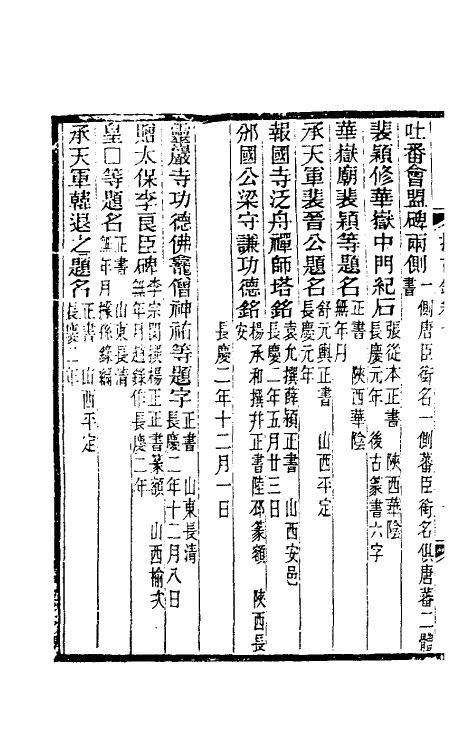 吐番會盟碑兩側一側唐臣銜名一側蕃臣銜名俱唐蕃二體
書
裴穎修華嶽中門紀石張從本正書　陝西華陰
長慶元年　後古篆書六字
華嶽廟裴穎等題名正書　陝西華陰
無年月
承天軍裴晉公題名舒元輿正書　山西平定
長慶元年
報國寺泛舟禪師塔銘袁允撰薛穎正書　山西安邑
長慶二年五月廿三日
邠國公梁守謙功德銘楊承和撰并正書陸邳篆額　陝西長
安
長慶二年十二月一日
靈巖寺功德佛龕僧神祐等題字正書　山東長清
長慶二年十二月八日
贈太保李良臣碑李宗閔撰楊正正書篆額　山西榆次
無年月趙錄作長慶二年
皇囗等題名正書　山東長清
無年月據孫錄編
承天軍韓退之題名正書　山西平定
長慶二年